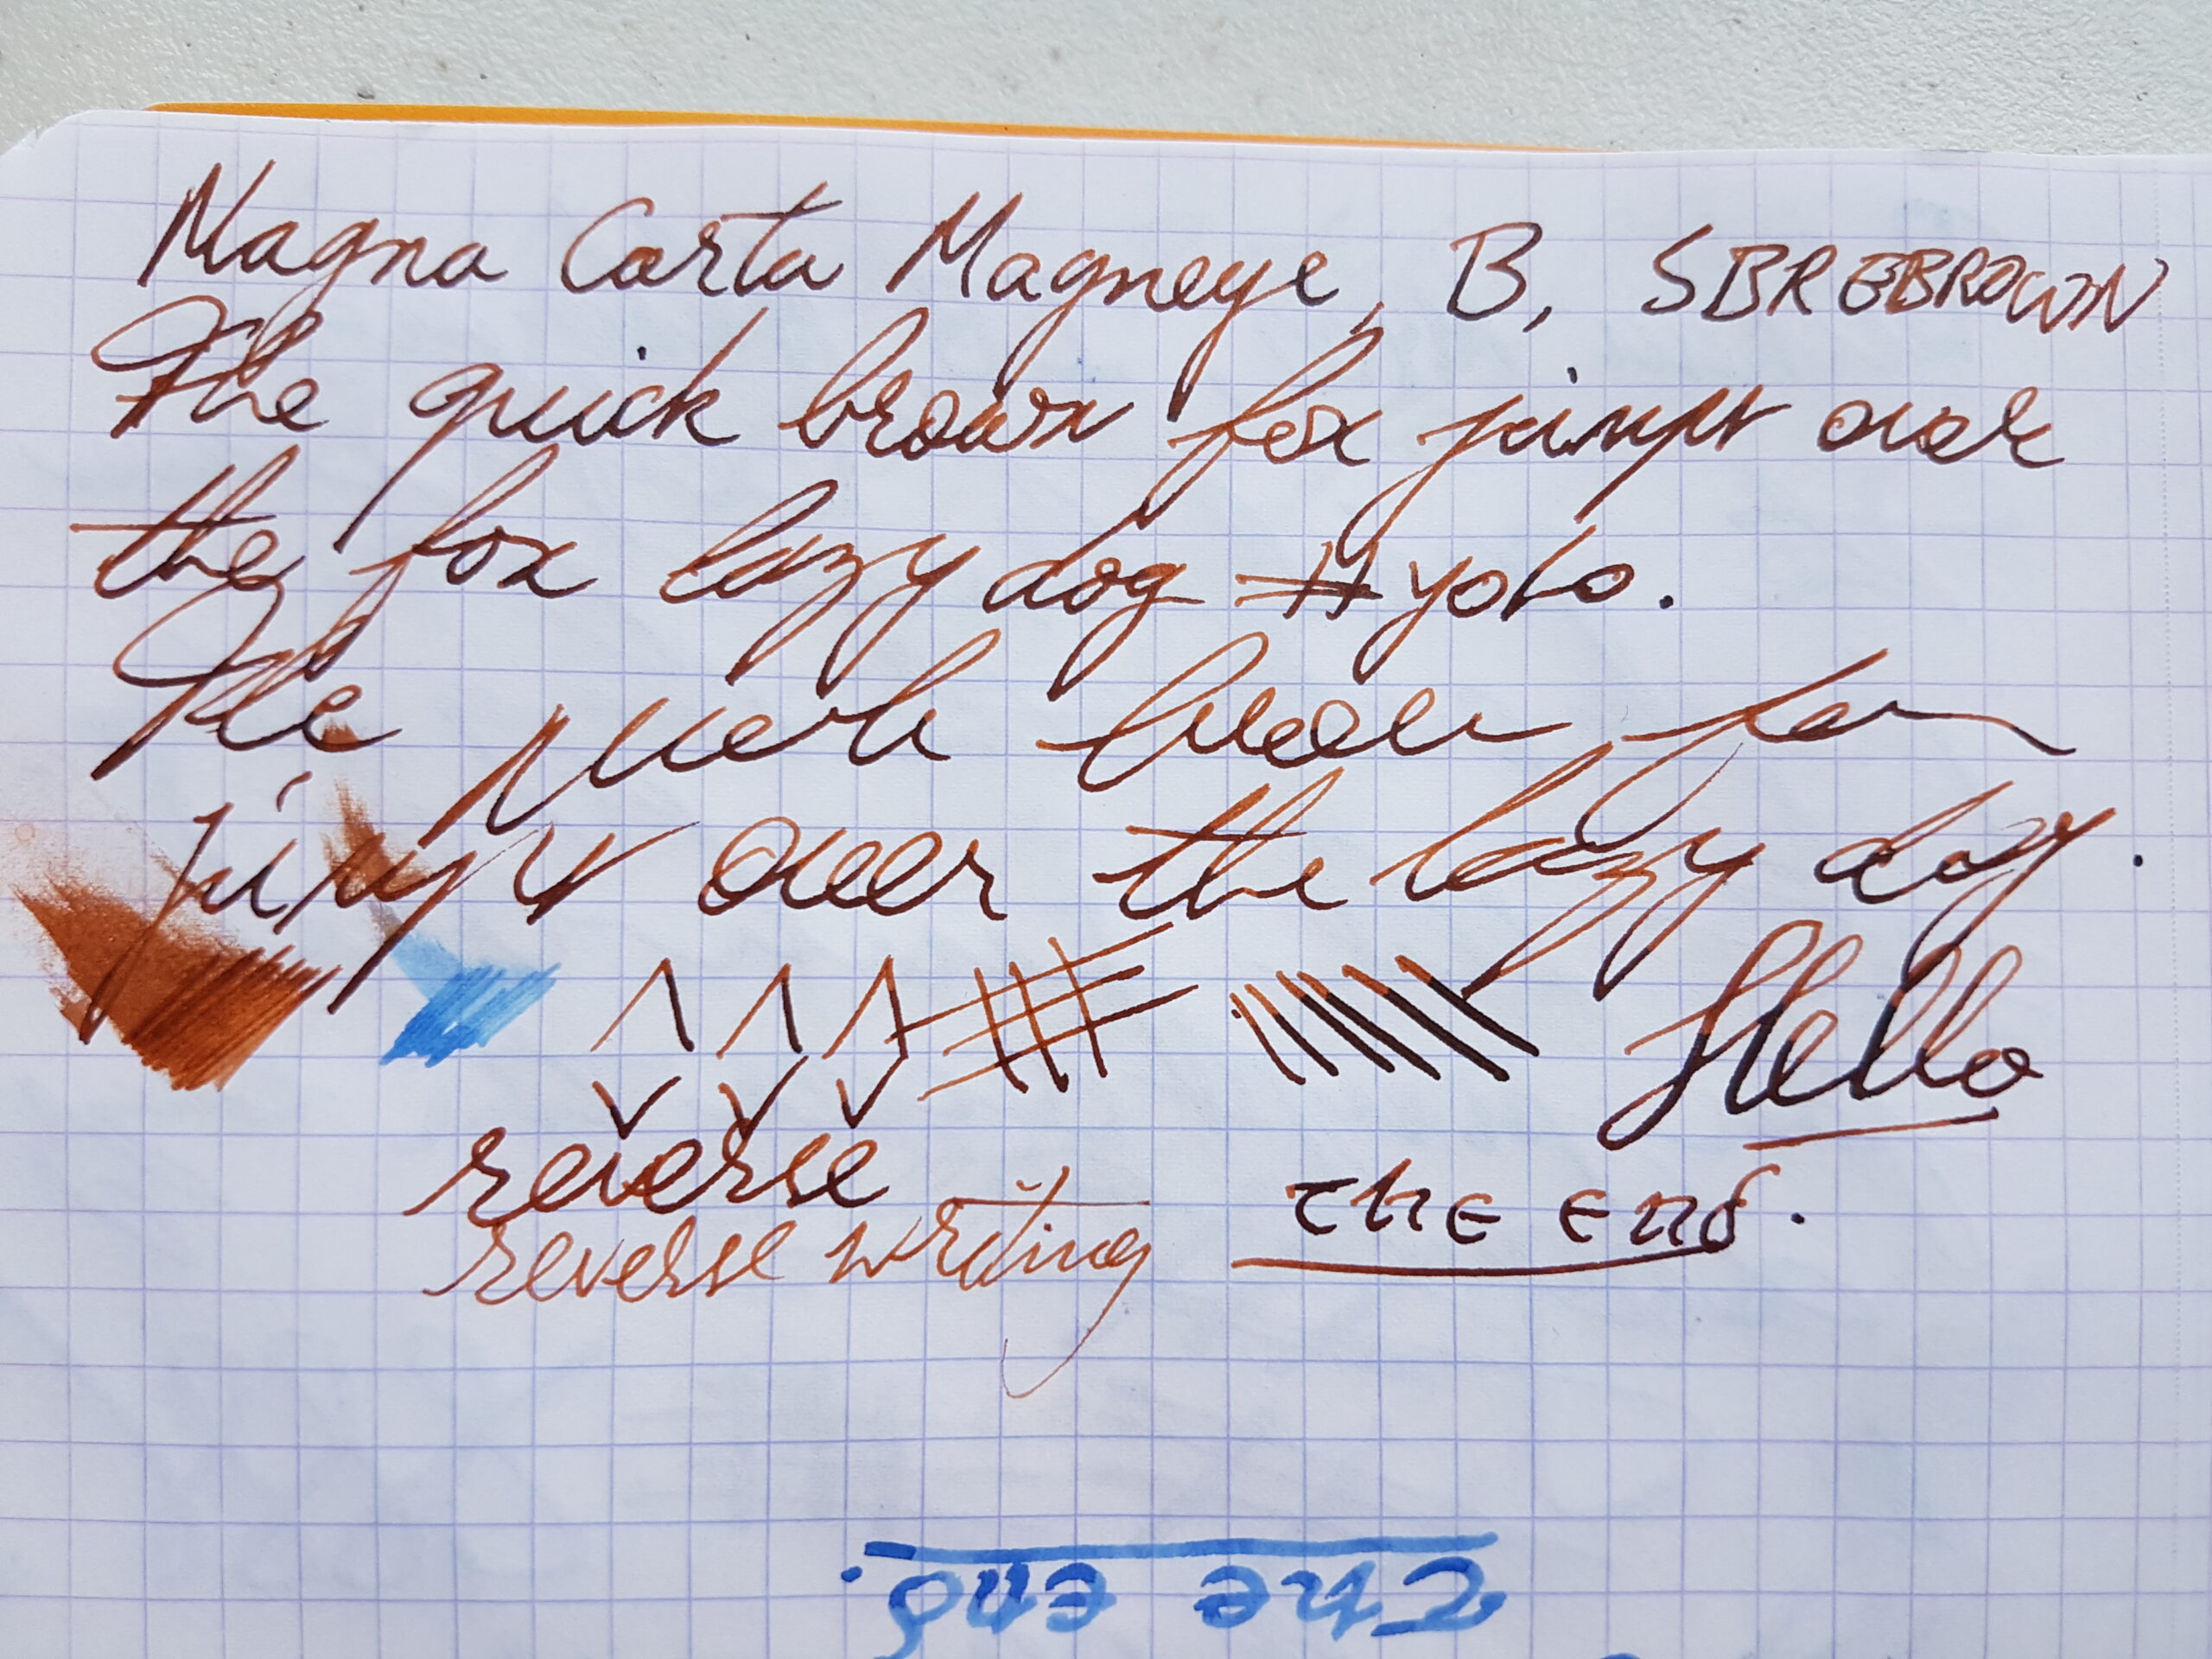 Magna Carta Magneye, B, SBREBROWN
The quick brown fox jumps over
the fox lazy dog #yolo.
The quick brown fox
jumps over the lazy dog.
Hello
reverse
reverse writing
the end.
the end.